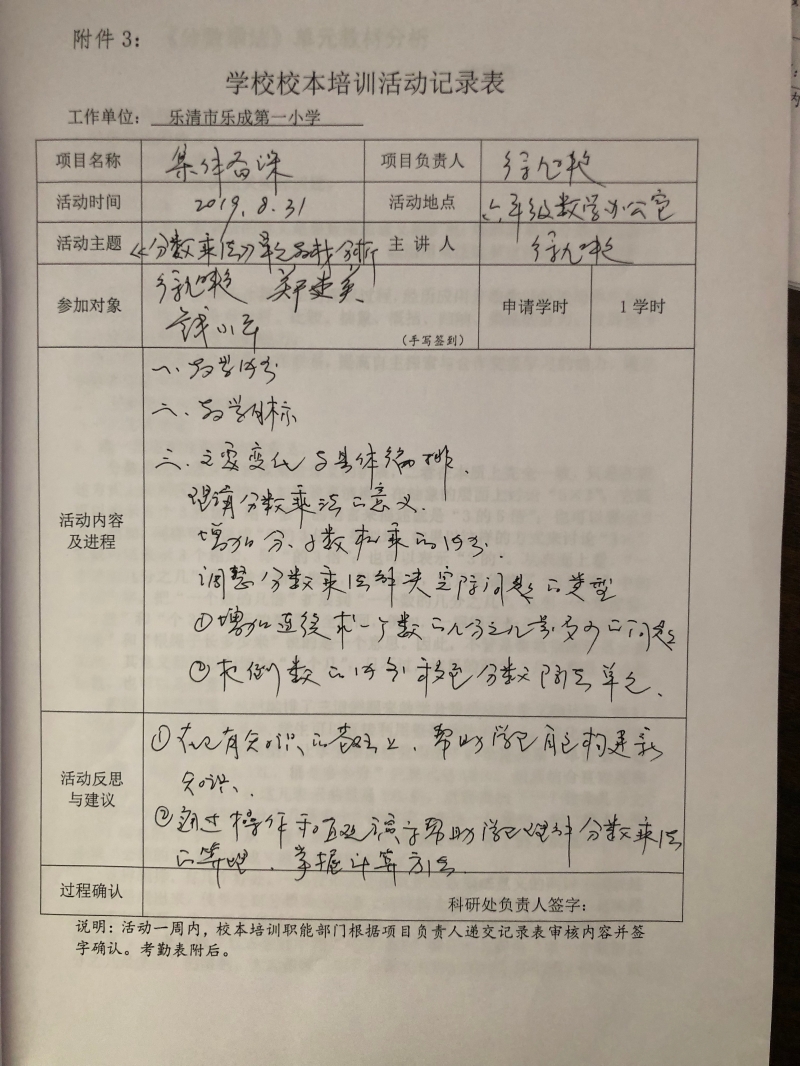 附件 3：
学校校本培训活动记录表
工作单位： 乐清市乐成第一小学
项目名称 集体备课 项目负责人
活动时间 2019.8.31 活动地点 六年级数学办公室
活动主题 《分数乘法》单元教材分析 主 讲 人
参加对象
郑建美 申请学时 1 学时
钱小平 （手写签到）
一、教学内容
二、教学目标
三、主要变化与具体编排.
理清分数乘法的意义.
活动内容
及进程
增加分、小数相乘的内容.
调整分数乘法解决实际问题的类型
①增加连续求一个数的几分之几是多少的问题
②把倒数的内容移至分数除法单元.
①在已有知识的基础上，帮助学生自主构建新
活动反思
与建议
知识.
②通过操作和直观演示帮助学生理解分数乘法
的算理，掌握计算方法.
过程确认
科研处负责人签字：
说明：活动一周内，校本培训职能部门根据项目负责人递交记录表审核内容并签
字确认。考勤表附后。